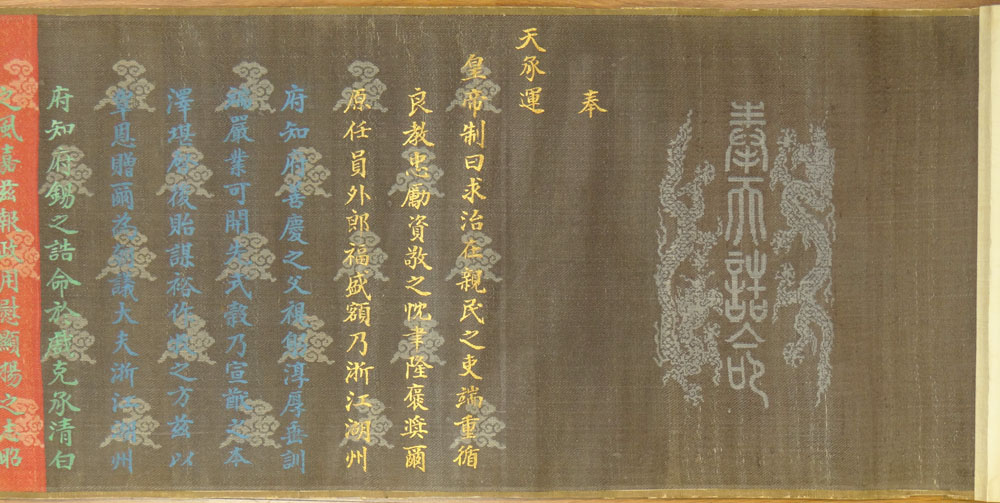 奉天誥命
奉
天承運
皇帝制曰求治在親民之吏端重循
良教忠勵資敬之忱聿隆褒奬爾
原任員外郎福盛額乃浙江湖州
府知府善慶之父禔躬淳厚垂訓
端嚴業可開先式穀乃宣猷之本
澤堪啟後貽謀裕作牧之方茲以
覃恩贈爾為朝議大夫浙江湖州
府知府錫之誥命於戲克承清白
之風嘉茲報政用慰顯揚之志